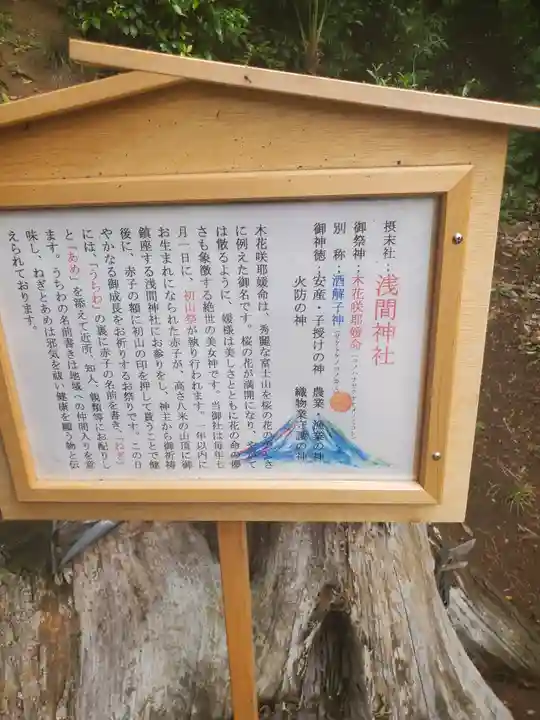 摂末社…浅間神社
御祭神…木花咲耶媛命(コノハナサクヤヒメノミコト)
別 称…酒解子神
御神徳…安産・子授けの神 農業・漁業の神
火防の神 織物業守護の神
木花咲耶媛命は、秀麗な富士山を桜の花の
に例えた御名です。桜の花が満開になり、やがて
は散るように、媛様は美しさとともに花の命の儚
さも象徴する絶世の美女神です。当御社は毎年七
月一日に、初山祭が執り行われます。一年以内に
お生まれになられた赤子が、高さ八米の山頂に御
鎮座する浅間神社にお参りをし、神主から御祈祷
後に、赤子の額に初山の印を押して貰うことで健
やかなる御成長をお祈りするお祭りです。この日
には、「うちわ」の裏に赤子の名前を書き、「ねぎ」
と「あめ」を添えて近所、知人、親類等にお配りし
ます。うちわの名前書きは地域への仲間入りを意
味し、ねぎとあめは邪気を祓い健康を願う物と伝
えられております。